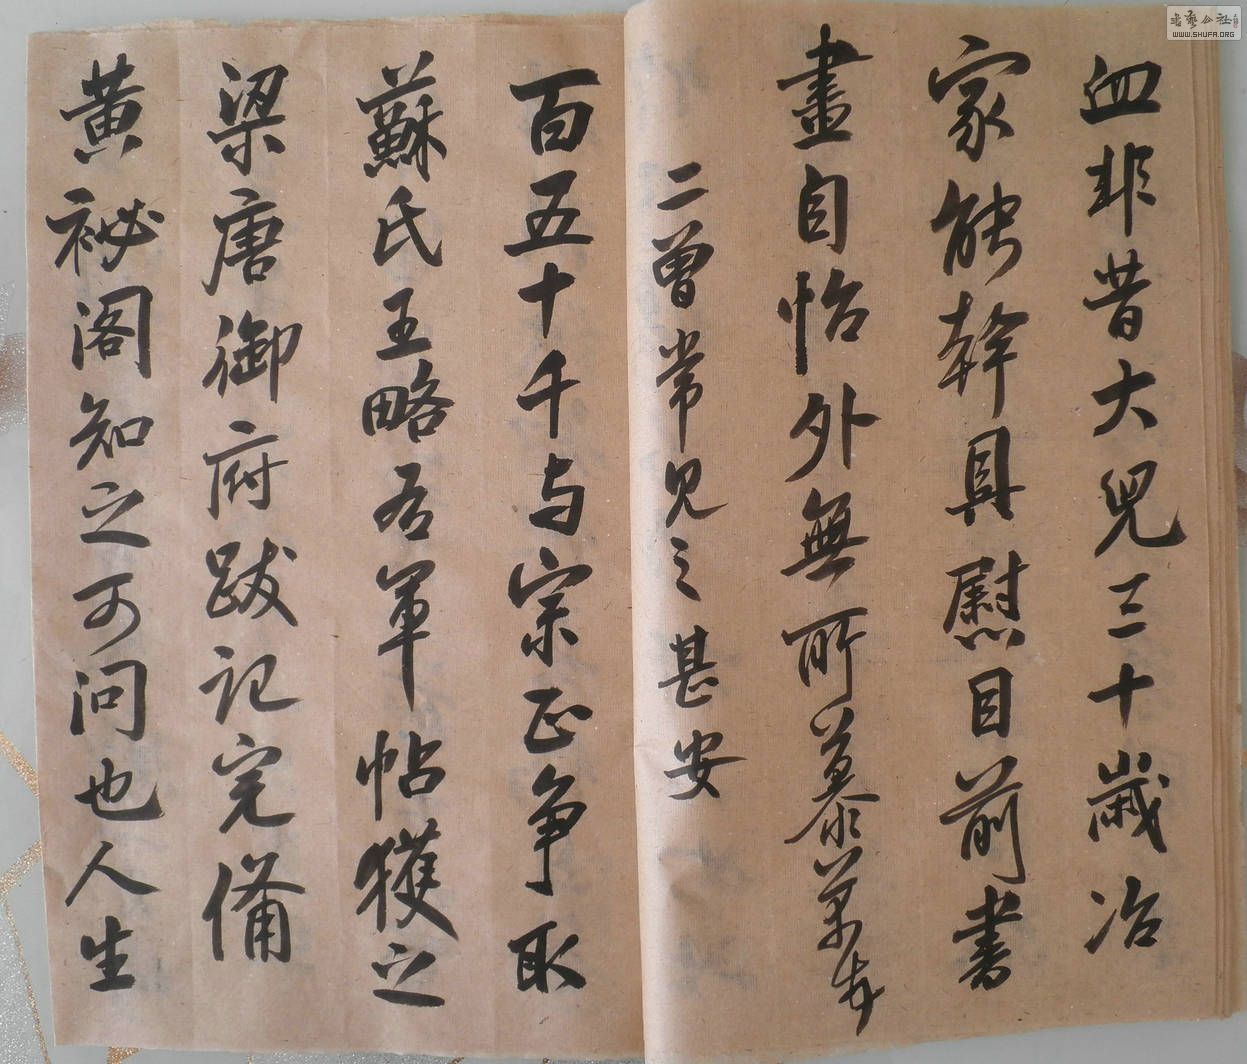 血非昔大兒三十歲治
家能幹具慰目前書
畫自怡外無所慕葉李
二曾常見之甚安
百五十千与宗正争取
蘇氏王略右軍帖獲之
梁唐御府跋记完備
黃祕阁知之可问也人生
書藝公社
WWW.SHUFA.ORG